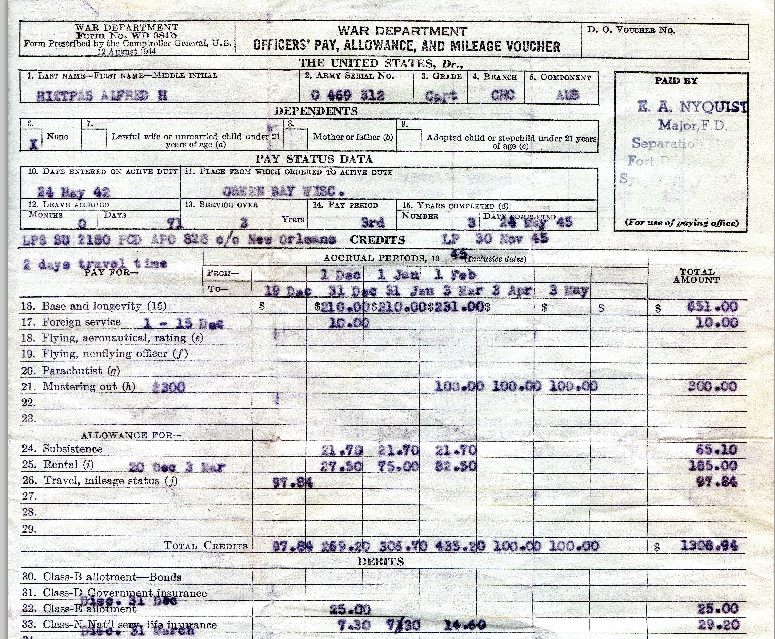 WAR DEPARTMENT
Form No. WD
Form Prescribed by the Comptroller General, U.S.
12 August 1944
WAR DEPARTMENT
OFFICERS' PAY, ALLOWANCE, AND MILEAGE VOUCHER
D. O. VOUCHER NO.
THE UNITED STATES, Dr.,
1. LAST NAME—FIRST NAME—MIDDLE INITIAL 2. ARMY SERIAL NO. 3. GRADE 4. BRANCH 5. COMPONENT
RIETPAS ALFRED H O 469 312 Capt CHC AUS
PAID BY
E. A. NYQUIST
Major, F.D.
Separatio
Fort D
Sy
(For use of paying office)
DEPENDENTS
6. X None 7. Lawful wife or unmarried child under 21 years of age (a) 8. Mother or father (b) 9. Adopted child or stepchild under 21 years of age (c)
PAY STATUS DATA
10. DATE ENTERED ON ACTIVE DUTY 11. PLACE FROM WHICH ORDERED TO ACTIVE DUTY
24 May 42 GREEN BAY WISC.
12. LEAVE ACCRUED 13. SERVICE OVER 14. PAY PERIOD 15. YEARS COMPLETED (d)
MONTHS 0 DAYS 71 3 YEARS 3rd NUMBER 3 DATE COMPLETED 24 May 45
LPS SU 2150 PCD APO 826 c/o New Orleans CREDITS LP 30 Nov 45
2 days travel time
PAY FOR—
ACCRUAL PERIODS, 19 45 (Inclusive dates)
TOTAL AMOUNT
FROM— 1 Dec 1 Jan 1 Feb
TO— 19 Dec 31 Dec 31 Jan 3 Mar 3 Apr 3 May
16. Base and longevity (15) $ $210.00 $210.00 $231.00 $ $ $ $ 651.00
17. Foreign service 1 - 15 Dec 10.00 10.00
18. Flying, aeronautical, rating (e)
19. Flying, nonflying officer (f)
20. Parachutist (g)
21. Mustering out (h) $300 100.00 100.00 100.00 300.00
22.
23.
ALLOWANCE FOR—
24. Subsistence 21.70 21.70 21.70 65.10
25. Rental (i) 20 Dec 3 Mar 27.50 75.00 82.50 185.00
26. Travel, mileage status (j) 97.84 97.84
27.
28.
29.
TOTAL CREDITS 97.84 269.20 306.70 435.20 100.00 100.00 $ 1308.94
DEBITS
30. Class-B allotment—Bonds
31. Class-D Government insurance
Disc. 31 Dec
32. Class-E allotment 25.00 25.00
33. Class-N Nat'l serv. life insurance 7.30 7.30 14.60 29.20
Disc. 31 March